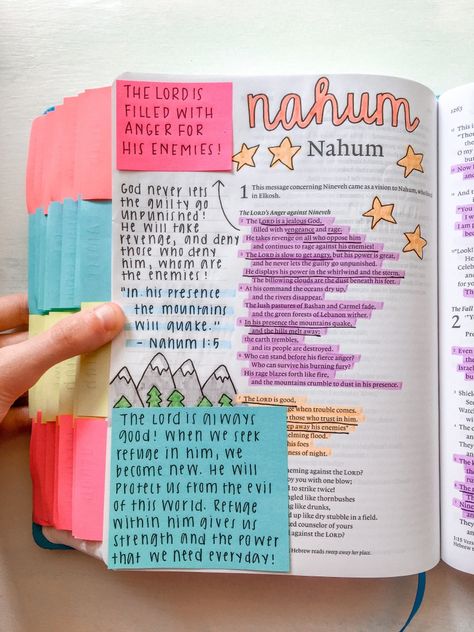 THE LORD IS
FILLED WITH
ANGER FOR
HIS ENEMIES!
God never lets
the guilty go
unpunished!
He will take
revenge, and deny
those who deny
him, whom are
the enemies!
"In his presence
the mountains
will quake."
- Nahum 1:5
The Lord is always
good! When we seek
refuge in him, we
become new. He will
protect us from the evil
of this world. Refuge
within him gives us
strength and the power
that we need everyday!
nahum
Nahum
1 This message concerning Nineveh came as a vision to Nahum, who lived
in Elkosh.
The LORD's Anger against Nineveh
2 The LORD is a jealous God,
filled with vengeance and rage.
He takes revenge on all who oppose him
and continues to rage against his enemies!
3 The LORD is slow to get angry, but his power is great,
and he never lets the guilty go unpunished.
He displays his power in the whirlwind and the storm.
The billowing clouds are the dust beneath his feet.
4 At his command the oceans dry up,
and the rivers disappear.
The lush pastures of Bashan and Carmel fade,
and the green forests of Lebanon wither.
5 In his presence the mountains quake,
and the hills melt away;
the earth trembles,
and its people are destroyed.
6 Who can stand before his fierce anger?
Who can survive his burning fury?
His rage blazes forth like fire,
and the mountains crumble to dust in his presence.
7 The LORD is good,
when trouble comes.
to those who trust in him.
sweep away his enemies
whelming flood.
his foes
ness of night.
scheming against the LORD?
you with one blow;
d to strike twice!
ngled like thornbushes
ng like drunks,
d up like dry stubble in a field.
ed counselor of yours
against the LORD?
Hebrew reads sweep away her place.
1263
The Fall
2